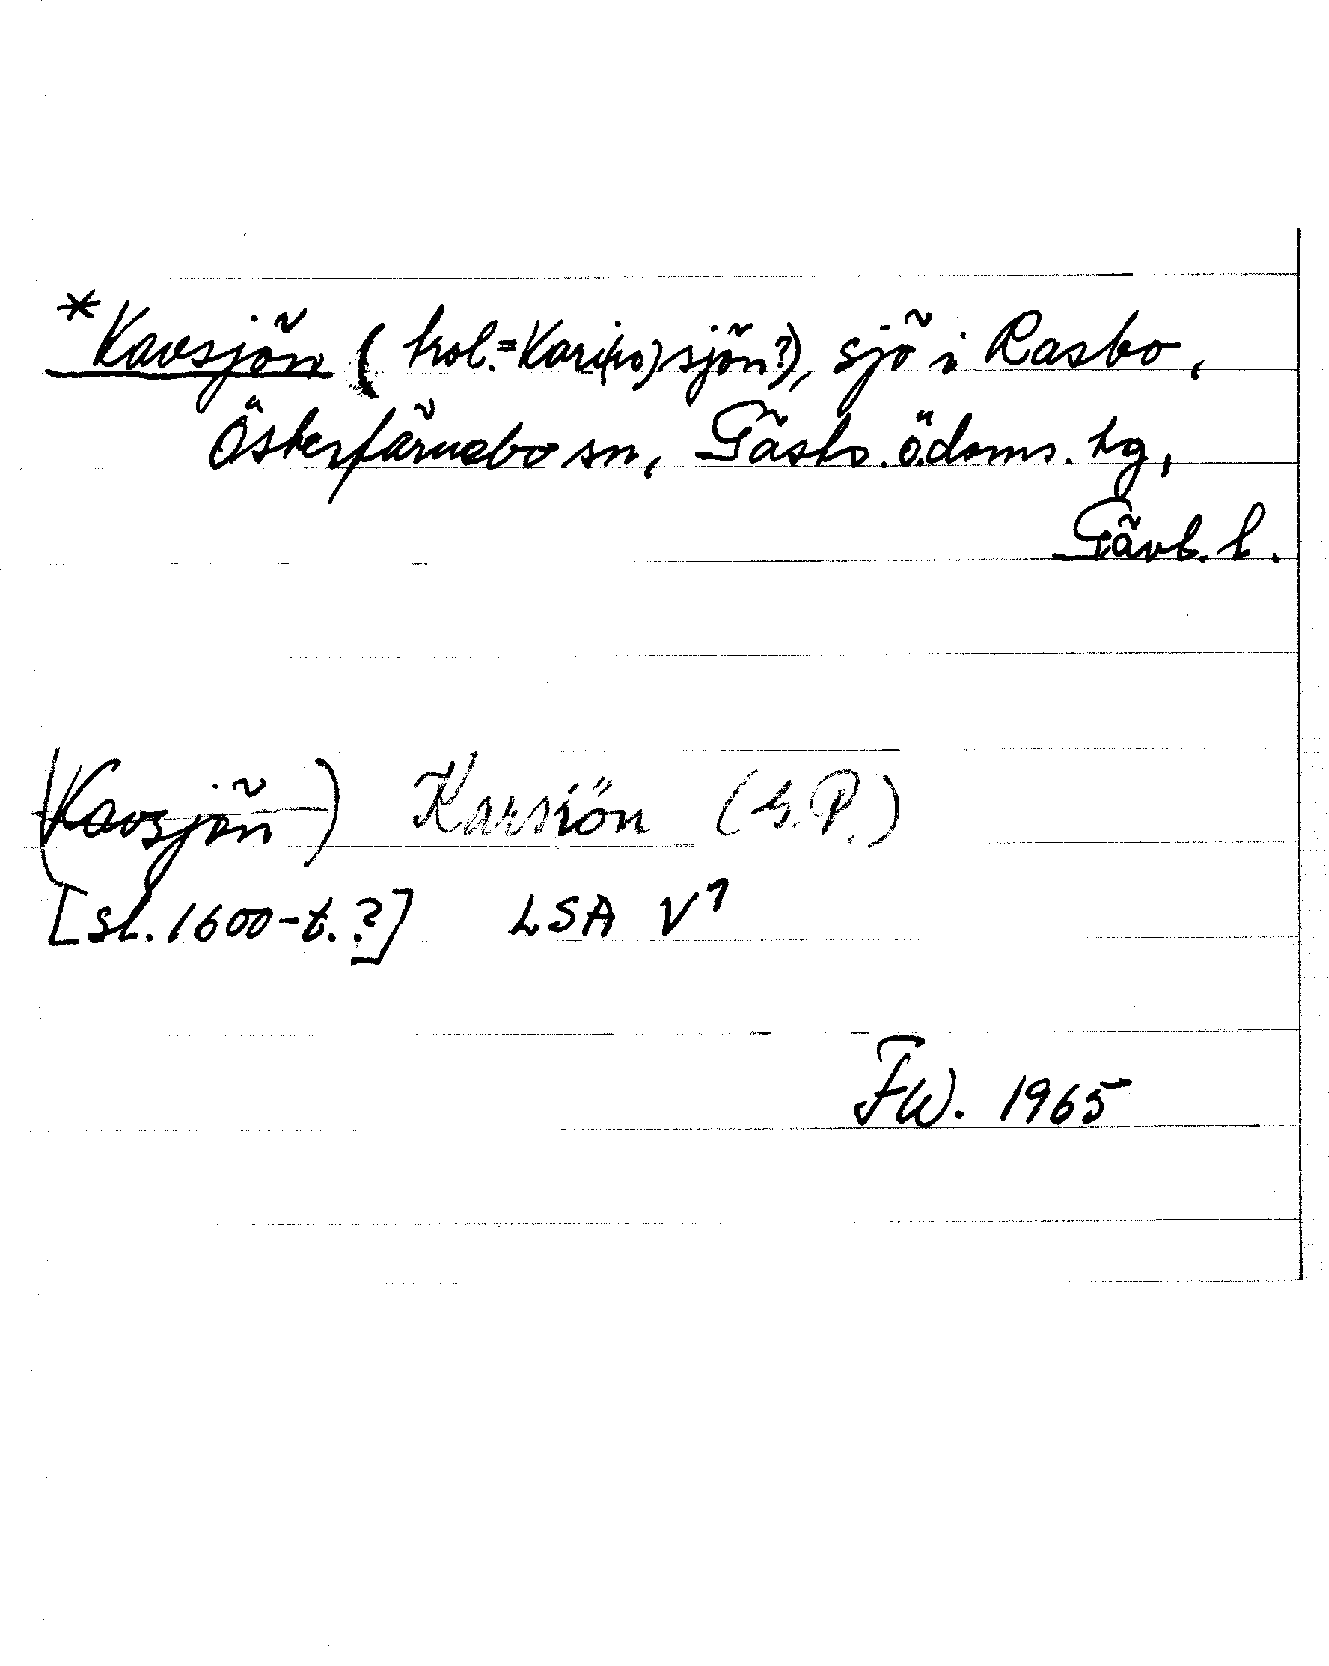 *Kavsjön (trol.=Kari(ko)sjön?), sjö i Rasbo,
Österfärnebo sn, Gästr. ö. doms. tg,
Gävl. l.
(Kavsjön) Karsiön (G.P.)
[sl. 1600-t.?] LSA V1
FW. 1965